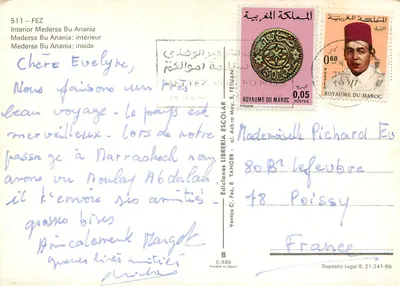 511 - FEZ
Interior Medersa Bu Anania
Medersa Bu Anania: intérieur
Medersa Bu Anania: inside
Chère Evelyne,
Nous faisons un très
beau voyage. le pays est
merveilleux. lors de notre
passage à Marrakech nous
avons vu Moulay Abdalah
il t'envoie ses amitiés
grosses bises
Amicalement Margot
grosses bises amitiés
Ediciones LIBRERIA ESCOLAR
B
C-588
المملكة المغربية
0,05
POSTES
ROYAUME DU MAROC
المملكة المغربية
0.60
ROYAUME DU MAROC
Mademoiselle Pichard Ev
80 Bd Lefeubvre
78 Poissy
France
Depósito Legal B. 21.241-66